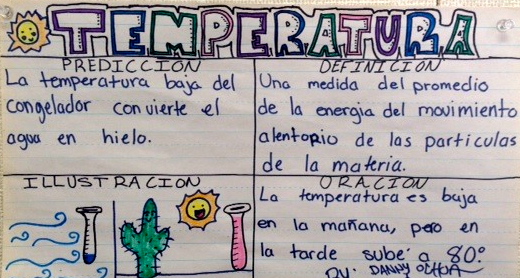 TEMPERATURA
PREDICCIÓN
La temperatura baja del
congelador convierte el
agua en hielo.
DEFINICIÓN
Una medida del promedio
de la energia del movimiento
alentorio de las particulas
de la materia.
ILLUSTRACION
ORACION
La temperatura es baja
en la mañana, pero en
la tarde sube a 80°
By: DANNY OCHOA